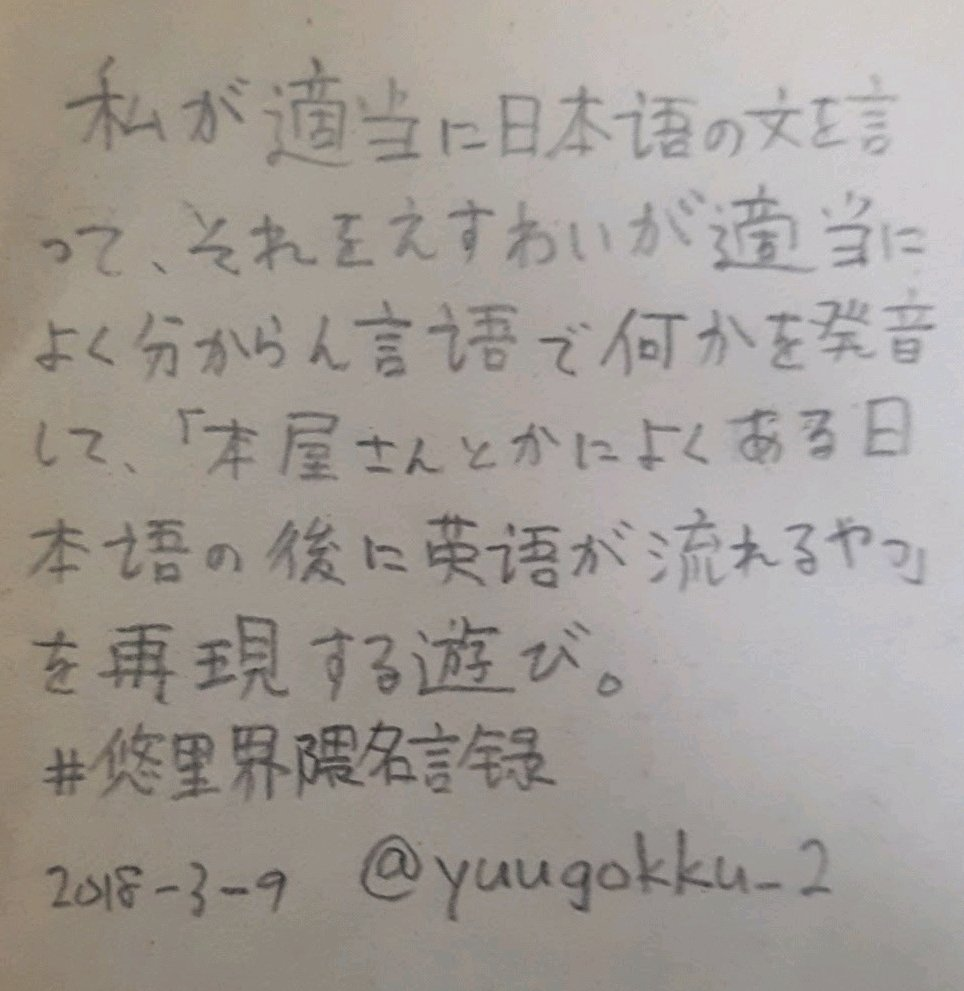 私が適当に日本语の文を言
って、それをえすわいが適当に
よく分からん言语で何かを発音
して、「本屋さんとかによくある日
本语の後に英语が流れるやつ」
を再現する遊び。
#悠里界隈名言録
2018-3-9 @yuugokku_2